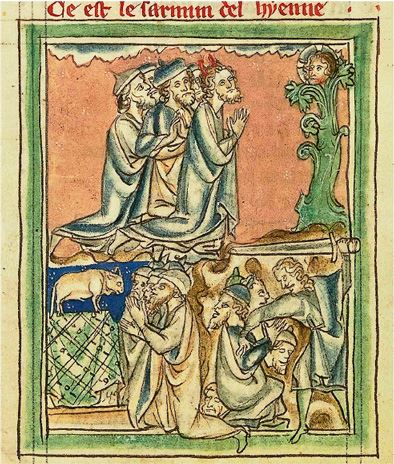 Ce est le sarmun del hyenne